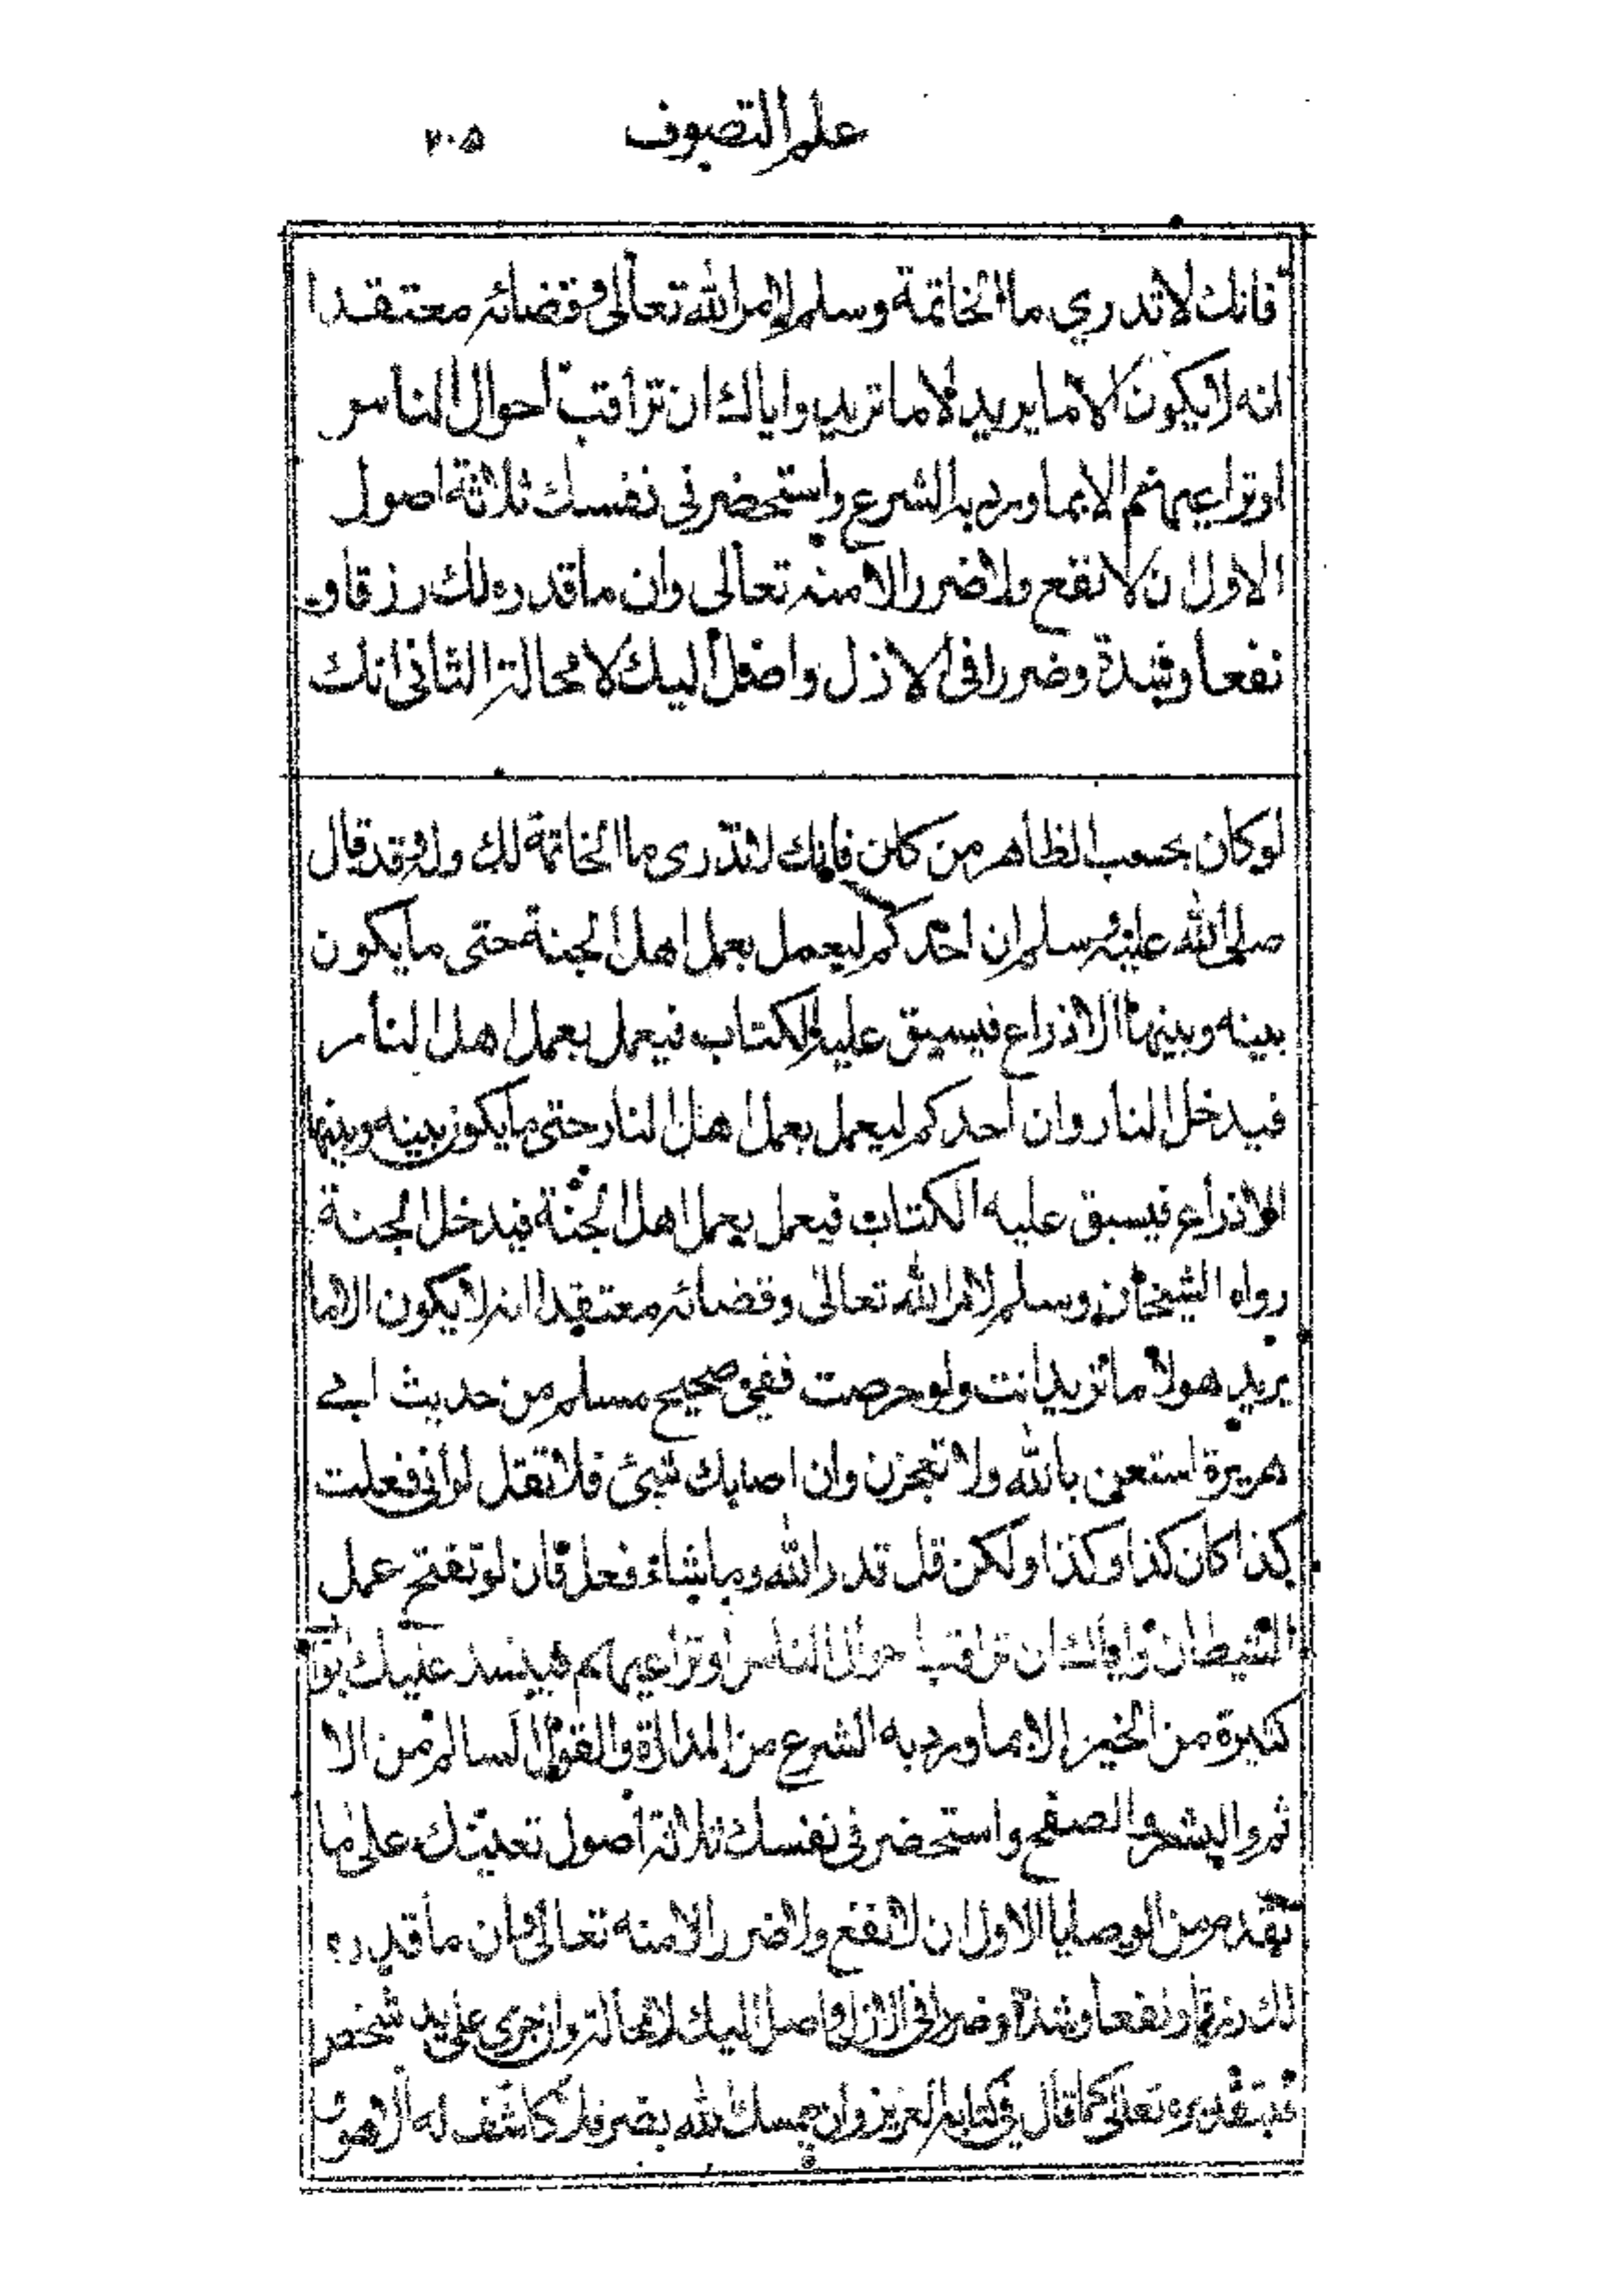 علم التصوف ٢٠٥
فانك لا تدري ما الخاتمة وسلم لامر الله تعالى وقضائه معتقدا
انه لا يكون الا ما يريد لا ما تريد واياك ان تراقب احوال الناس
او تراعيهم الا بما ورد به الشرع واستحضر في نفسك ثلاثة اصول
الاول ان لا نفع ولا ضرر الا منه تعالى وان ما قدره لك رزقا و
نفعا وشدة وضررا في الازل واصل اليك لا محالة الثاني انك
لو كان بحسب الظاهر من كان فانك لا تدرى ما الخاتمة لك وله قد قال
صلى الله عليه وسلم ان احدكم ليعمل بعمل اهل الجنة حتى ما يكون
بينه وبينها الا ذراع فيسبق عليه الكتاب فيعمل بعمل اهل النار
فيدخل النار وان احدكم ليعمل بعمل اهل النار حتى ما يكون بينه وبينها
الا ذراع فيسبق عليه الكتاب فيعمل بعمل اهل الجنة فيدخل الجنة
رواه الشيخان وسلم لامر الله تعالى وقضائه معتقدا انه لا يكون الا ما
يريد هو لا ما تريد انت ولو حرصت ففي صحيح مسلم من حديث ابي
هريرة استعن بالله ولا تعجزن وان اصابك شيئ فلا تقل لو أني فعلت
كذا كان كذا وكذا ولكن قل قدر الله وما شاء فعل فان لو تفتح عمل
الشيطان واياك ان تراقب احوال الناس او تراعيهم فيفسد عليك
كثيرة من الخير الا بما ورد به الشرع من المداراة والقول السالم من الا
ثم والبشر والصفح واستحضر في نفسك ثلاثة اصول تعينك على ما
تقدم من الوصايا الاول ان لا نفع ولا ضرر الا منه تعالى وان ما قدره
لك رزقا ونفعا وشدة وضررا في الازل واصل اليك لا محالة وان جرى على يد شخص
فبتقديره تعالى كما قال في كتابه العزيز وان يمسسك الله بضر فلا كاشف له الا هو